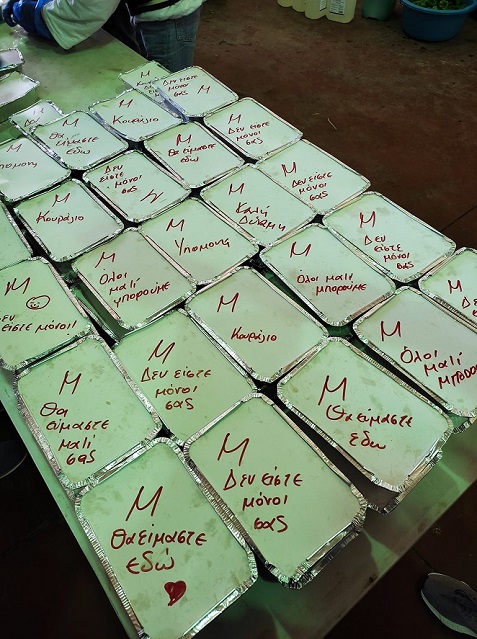 Μ
Κουράγιο
Δεν είστε
μόνοι
σας
Μ
Μ
Κουράγιο
Μ
Δεν είστε
μόνοι
σας
Μ
Θα
είμαστε
εδώ
Μ
Θα είμαστε
εδώ
Μ
Δεν είστε
μόνοι
σας
Υπομονή
Μ
Δεν είστε
μόνοι
σας
Μ
Μ
Καλή
Δύναμη
Μ
Δεν είστε
μόνοι
σας
Μ
Κουράγιο
Μ
Υπομονή
Μ
Όλοι μαζί
μπορούμε
Μ
Δεν
Μ
Όλοι
μαζί
μπορούμε
Μ
Κουράγιο
Μ
Όλοι
μαζί
Μ
είστε μόνοι!
Μ
Δεν είστε
μόνοι
σας
Μ
Θα είμαστε
εδώ
Μ
Θα
είμαστε
μαζί
σας
Μ
Δεν είστε
μόνοι
σας
Μ
Θα είμαστε
εδώ